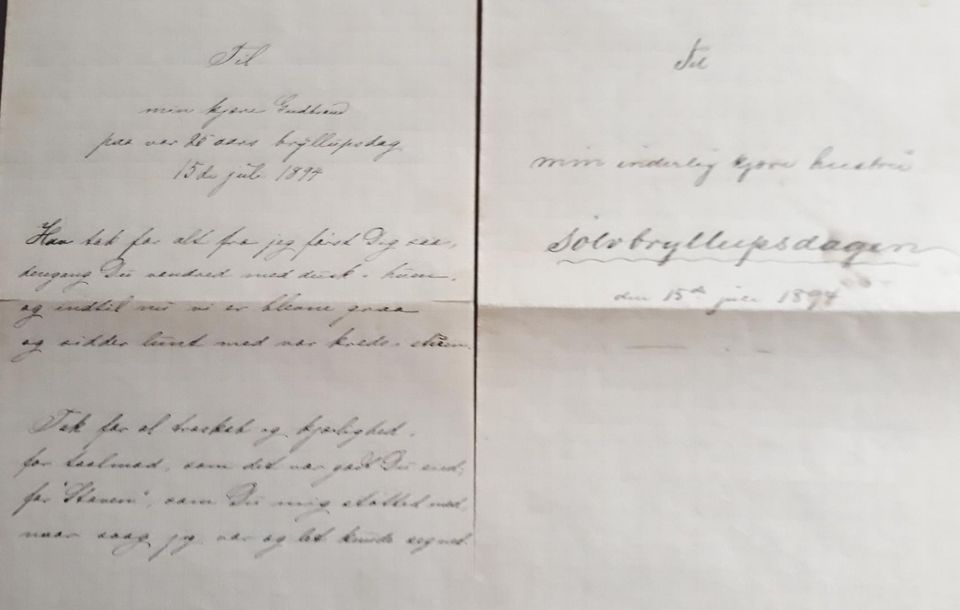 Til
min kjære Gudbrand
paa vor 25 aars bryllupsdag
15de juli 1894
Hav tak for alt fra jeg først Dig saa,
dengang Du vandred med dusk i huen,
og indtil nu vi er blevne graa
og sidder lunt med vor kreds i stuen.
Tak for al troskab og kjærlighed,
for taalmod, som det var godt Du
for "Staven", som Du mig støttet med,
naar svag jeg var og let kunde segnet.
Til
min inderlig kjære hustru
Sølvbryllupsdagen
den 15de juli 1894